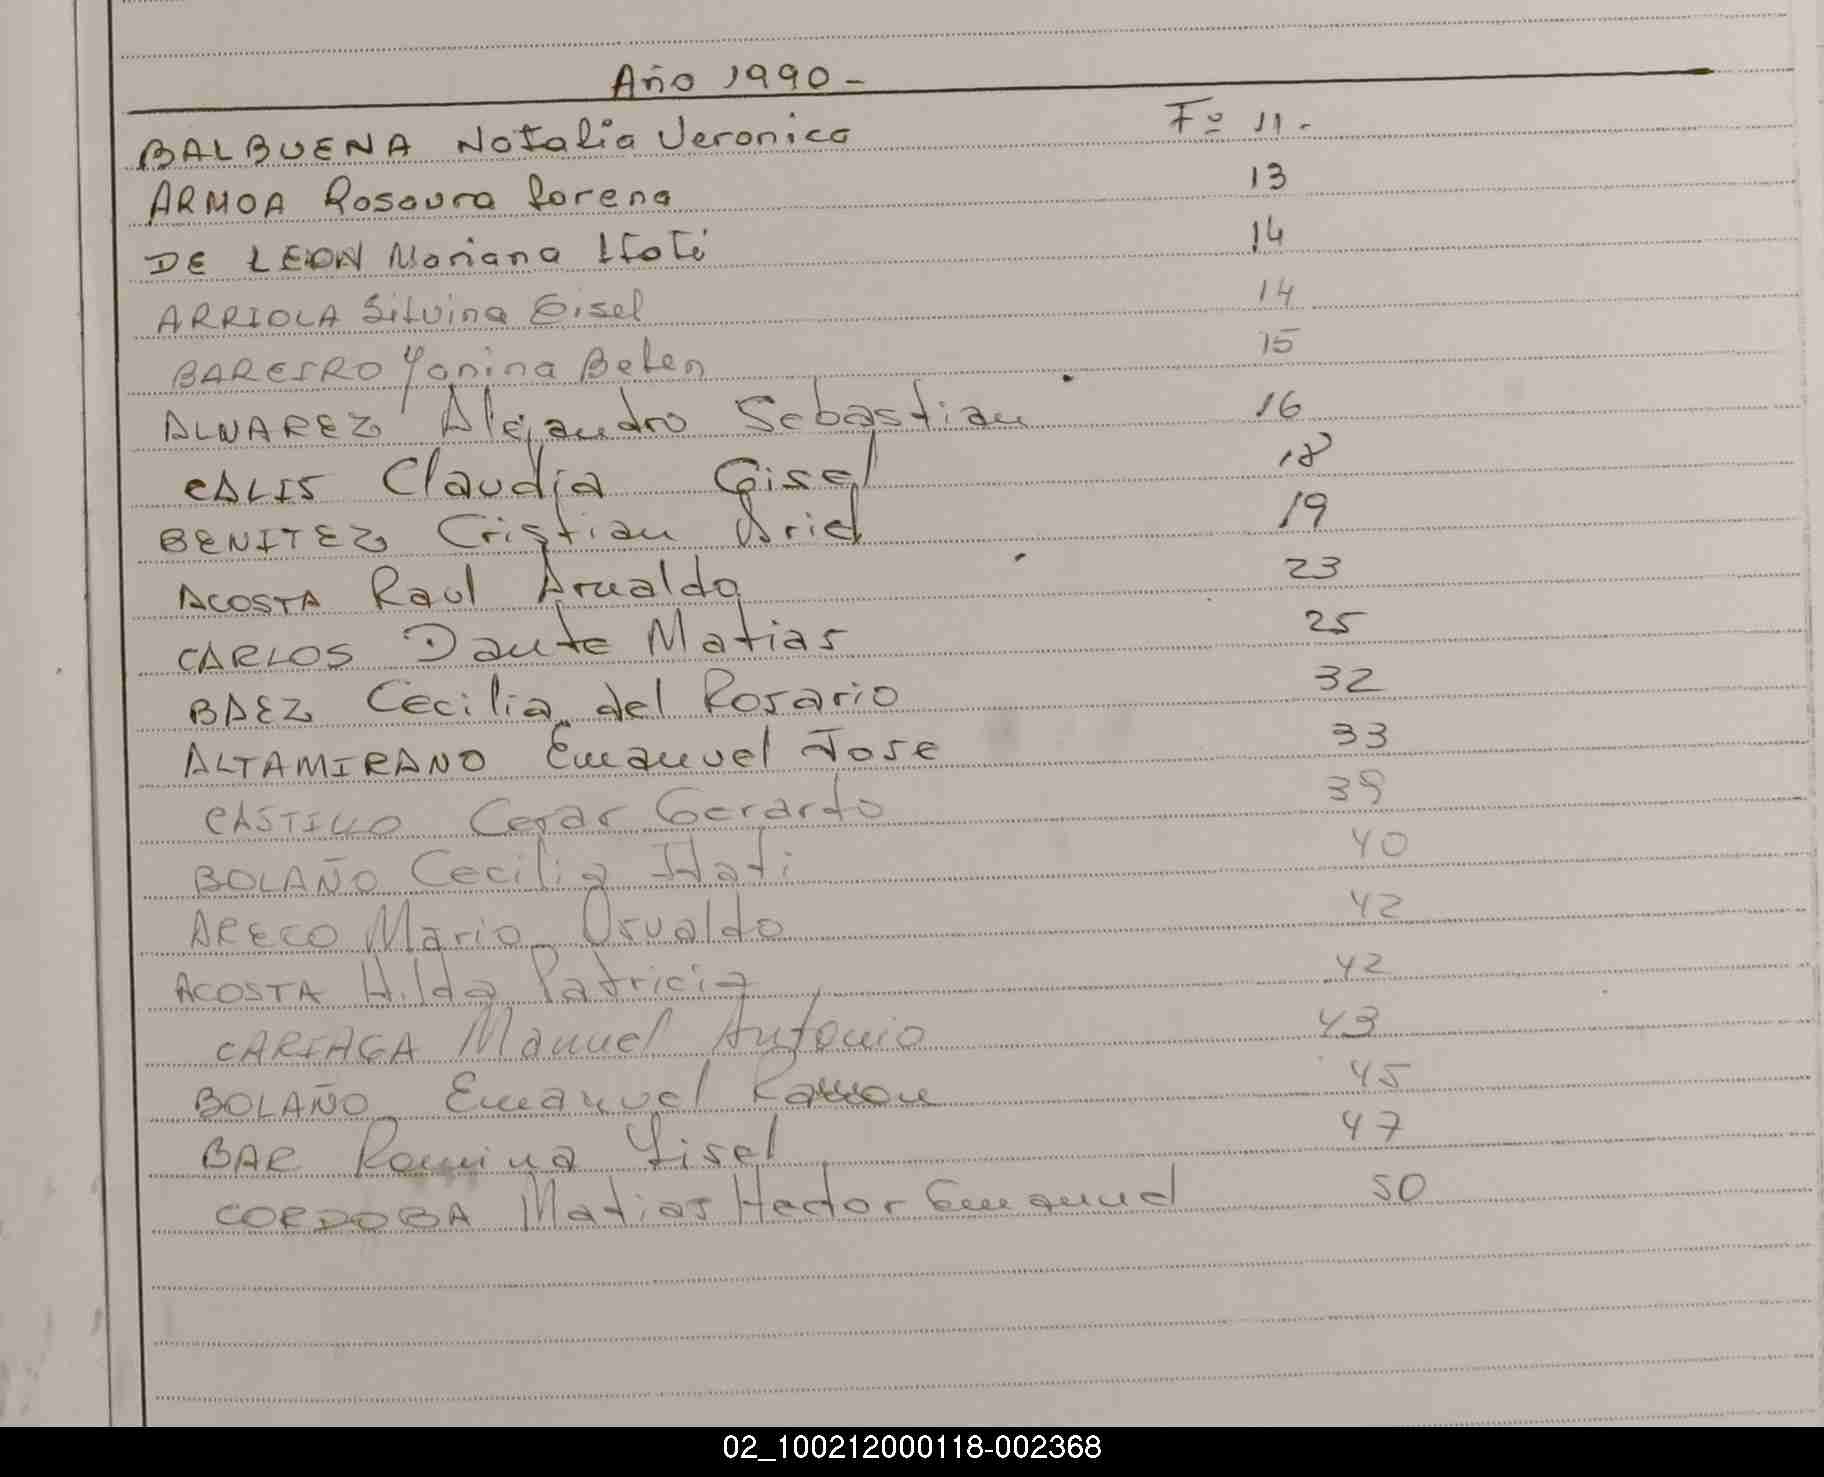 Año 1990-
BALBUENA Natalia Veronica Fº 11.
ARMOA Rosaura Lorena 13
DE LEON Mariana Itatí 14
ARRIOLA Silvina Gisel 14
BAREIRO Yanina Belen 15
ALVAREZ Alejandro Sebastian 16
CALIS Claudia Gisel 18
BENITEZ Cristian Ariel 19
ACOSTA Raul Arnaldo 23
CARLOS Dante Matias 25
BAEZ Cecilia del Rosario 32
ALTAMIRANO Emanuel Jose 33
CASTILLO Cesar Gerardo 39
BOLAÑO Cecilia Itati 40
ARECO Mario Osvaldo 42
ACOSTA Hilda Patricia 42
CARIAGA Manuel Antonio 43
BOLAÑO Emanuel Ramon 45
BAR Romina Yisel 47
CORDOBA Matias Hector Emanuel 50
02_100212000118-002368